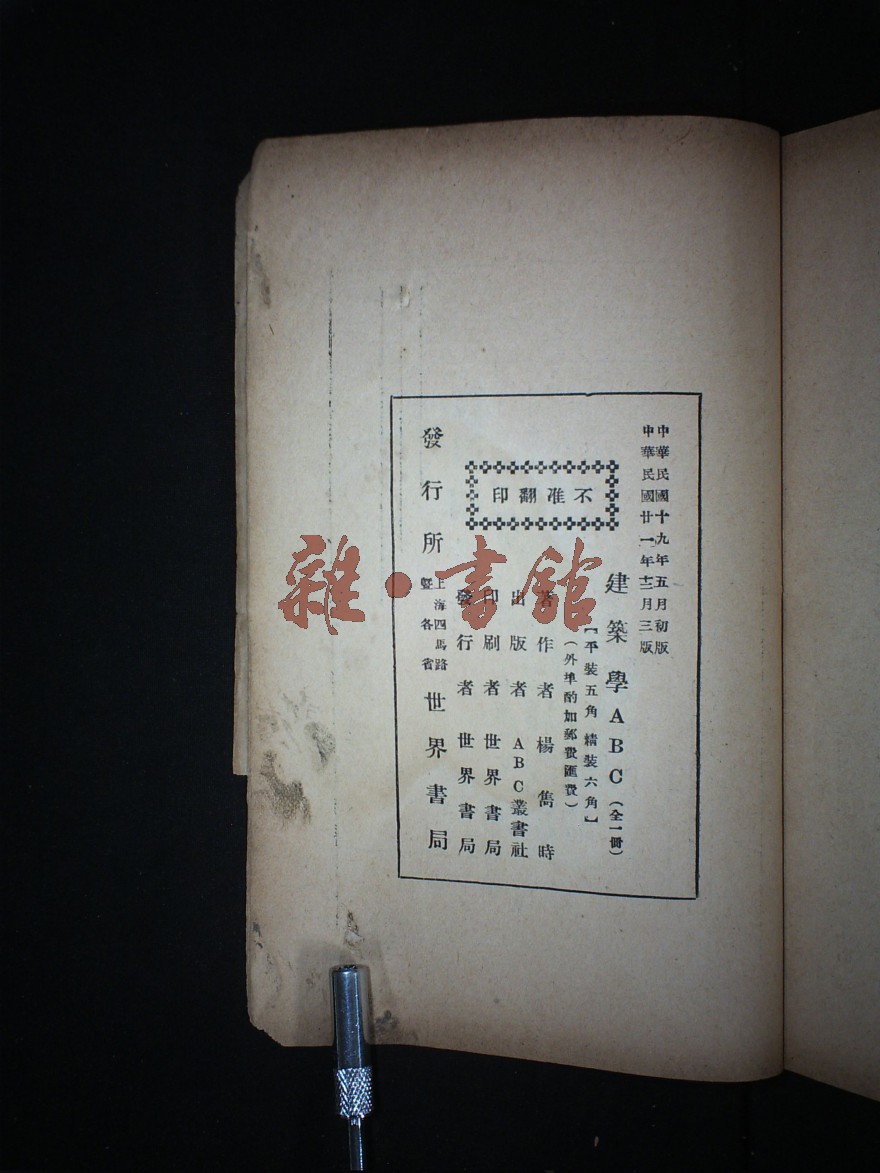 中華民國十九年五月初版
中華民國廿一年十二月三版
建築學ABC（全一冊）
【平裝五角 精裝六角】
（外埠酌加郵費匯費）
不准翻印
著作者 楊雋時
出版者 ABC叢書社
印刷者 世界書局
發行者 世界書局
發行所 上海四馬路
暨各省 世界書局
雜·書館